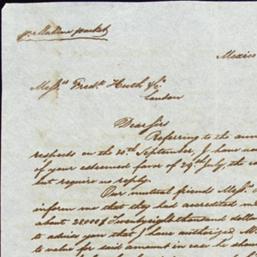 Mexico
Mess.rs Fred.k Huth & C.o
London
Dear Sirs
Referring to the
on the 10th September, I have
of your esteemed favor of 29th July, the
but require no reply.
Our mutual friends Mess.rs
inform me that they has accredited
about 28000$ Twenty eight thousand dollar
to advise you that I have authorized
to value for said amount in case he